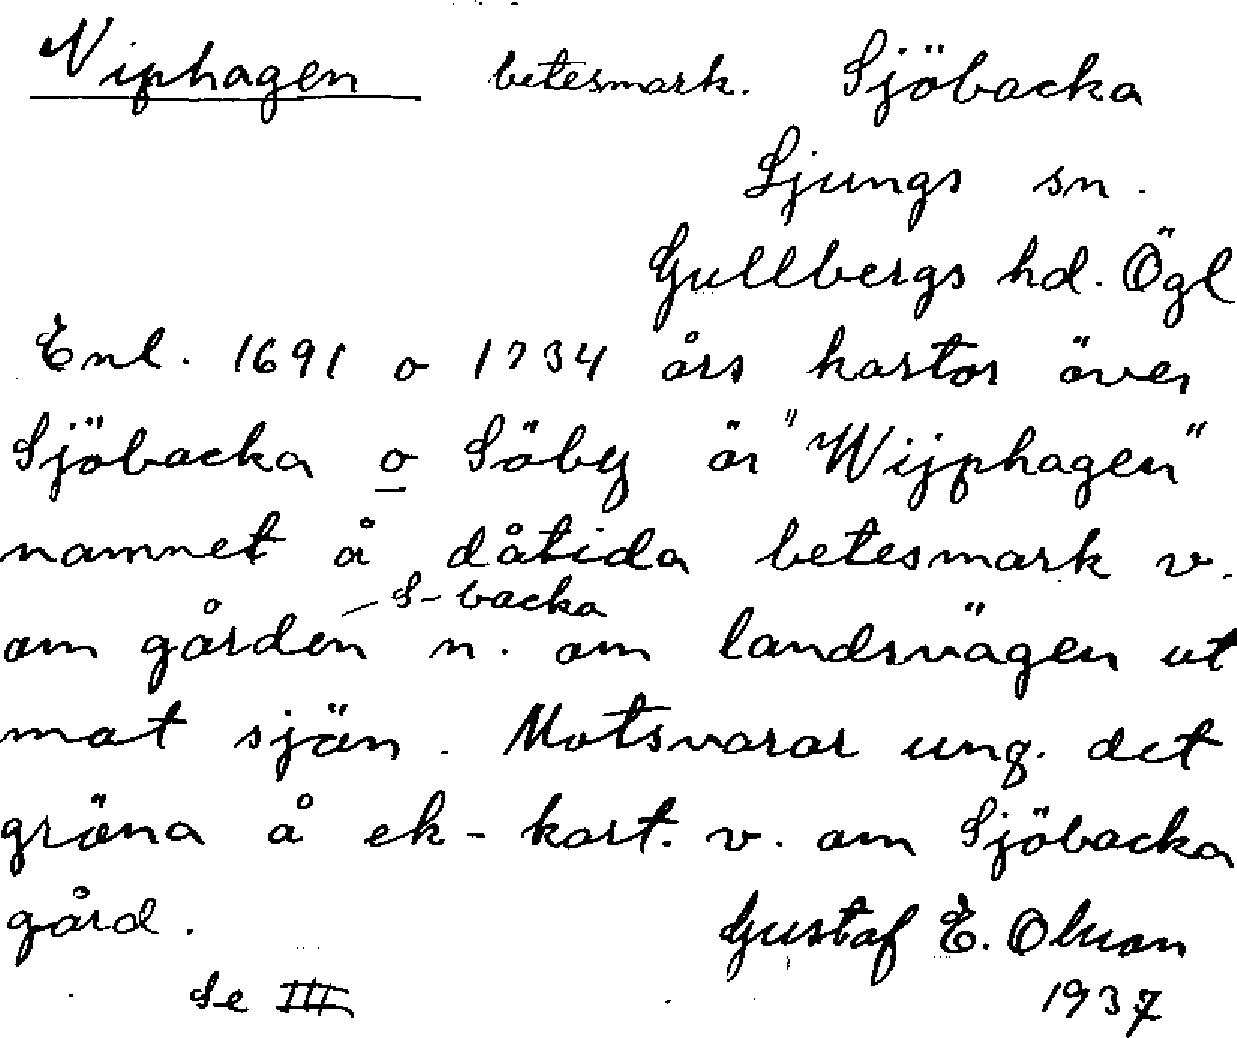 Viphagen betesmark. Sjöbacka
Ljungs sn.
Gullbergs hd. Ögl
Enl. 1691 o 1734 års kartor över
Sjöbacka o Söby är "Wijphagen"
namnet å dåtida betesmark v.
om gården – S-backa n. om landsvägen ut
mot sjön. Motsvarar ung. det
gröna å ek-kart. v. om Sjöbacka
gård. Gustaf E. Olsson
Se III 1937